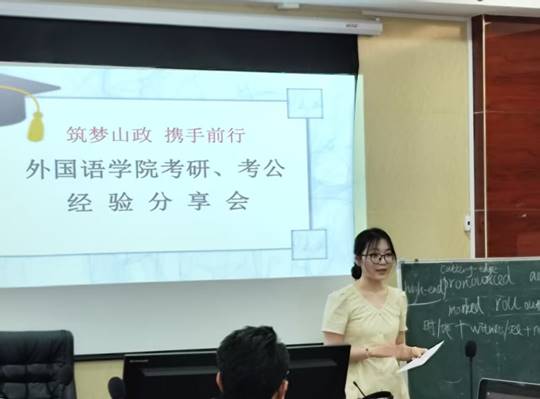 筑梦山政 携手前行
外国语学院考研、考公
经验分享会
cutting-edge
high-end
pronounced
marked roll out